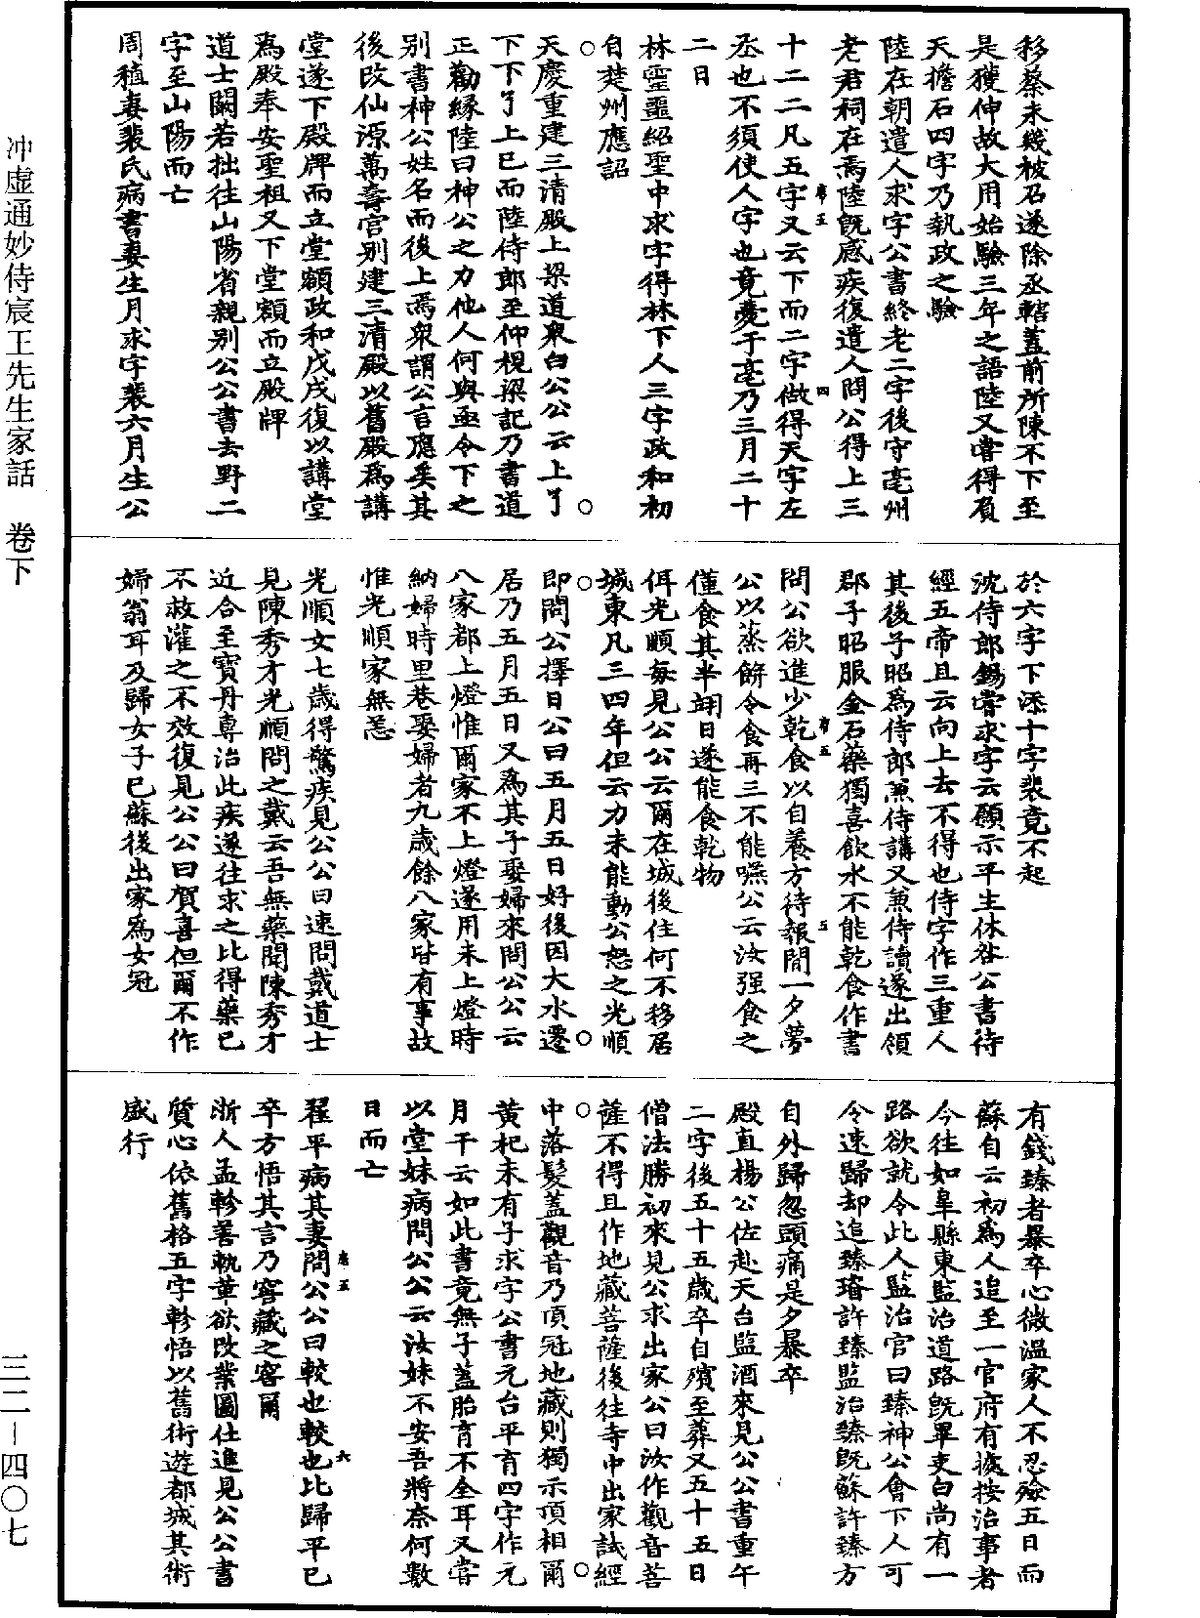 移蔡未幾被召遂除丞轄蓋前所陳不下至
是獲伸故大用始驗三年之語陸又嘗得負
天擔石四字乃執政之驗
陸在朝遣人求字公書終老二字後守亳州
老君祠在焉陸旣感疾復遣人問公得上三
十二二凡五字又云下而二字做得天字左
丞也不須使人字也竟薨于亳乃三月二十
二日
林靈噩紹聖中求字得林下人三字政和初
自楚州應詔
天慶重建三清殿上梁道衆白公公云上了
下下了上已而陸侍郎至仲梘梁記乃書道
正勸緣陸曰神公之力他人何與亟令下之
別書神公姓名而後上焉衆謂公言應矣其
後改仙源萬壽宮別建三清殿以舊殿爲講
堂遂下殿牌而立堂額政和戊戌復以講堂
爲殿奉安聖祖又下堂額而立殿牌
道士闞若拙往山陽省親別公公書去野二
字至山陽而亡
周穜妻裴氏病書妻生月求字裴六月生公
於六字下添十字裴竟不起
沈侍郎錫嘗求字云願示平生休咎公書待
經五帝且云向上去不得也侍字作三重人
其後子昭爲侍郎兼侍講又兼侍讀遂出領
郡子昭服金石藥獨喜飲水不能乾食作書
問公欲進少乾食以自養方待報間一夕夢
公以蒸餅令食再三不能嚥公云汝强食之
僅食其半翊日遂能食乾物
佴光順每見公公云爾在城後住何不移居
城東凡三四年但云力未能動公怒之光順
即問公擇日公曰五月五日好後因大水遷
居乃五月五日又爲其子娶婦來問公公云
八家都上燈惟爾家不上燈遂用未上燈時
納婦時里巷娶婦者九歲餘八家皆有事故
惟光順家無恙
光順女七歲得驚疾見公公曰速問戴道士
見陳秀才光順問之戴云吾無藥聞陳秀才
近合至寶丹專治此疾遂往求之比得藥已
不救灌之不效復見公公曰賀喜但爾不作
婦翁耳及歸女子已蘇後出家爲女冠
有錢臻者暴卒心微溫家人不忍殮五日而
蘇自云初爲人追至一官府有據按治事者
今往如皋縣東監治道路旣畢吏白尚有一
路欲就令此人監治官曰臻神公會下人可
令速歸却追臻璿許臻監治臻旣蘇許臻方
自外歸忽頭痛是夕暴卒
殿直楊公佐赴天台監酒來見公公書重午
二字後五十五歲卒自殯至葬又五十五日
僧法勝初來見公求出家公曰汝作觀音菩
薩不得且作地藏菩薩後往寺中出家試經
中落髮蓋觀音乃頂冠地藏則獨示頂相爾
黃杞未有子求字公書元台平育四字作元
月干云如此書竟無子蓋胎育不全耳又嘗
以堂妹病問公公云汝妹不安吾將奈何數
日而亡
翟平病其妻問公公曰較也較也比歸平已
卒方悟其言乃窖藏之窖爾
浙人孟軫善軌革欲改業圖仕進見公公書
質心依舊格五字軫悟以舊術遊都城其術
盛行
冲虛通妙侍宸王先生家話 卷下
三二—四〇七